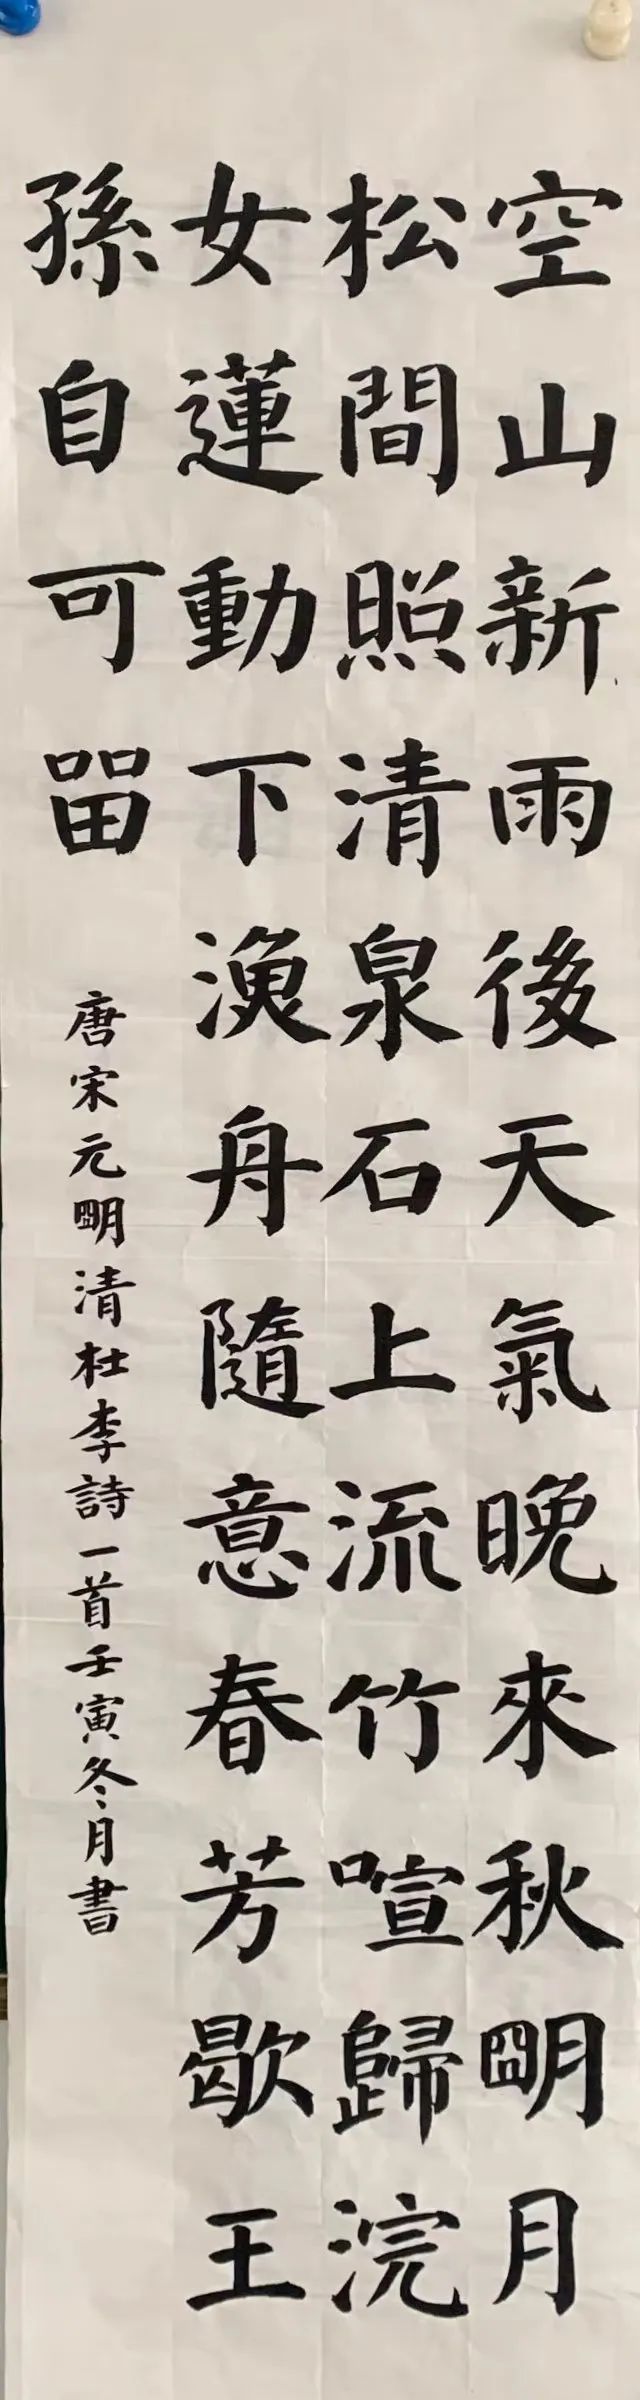 空山新雨後天氣晚來秋朙月
松間照清泉石上流竹喧歸浣
女蓮動下漁舟隨意春芳歇王
孫自可留
唐宋元朙清杜李詩一首壬寅冬月書